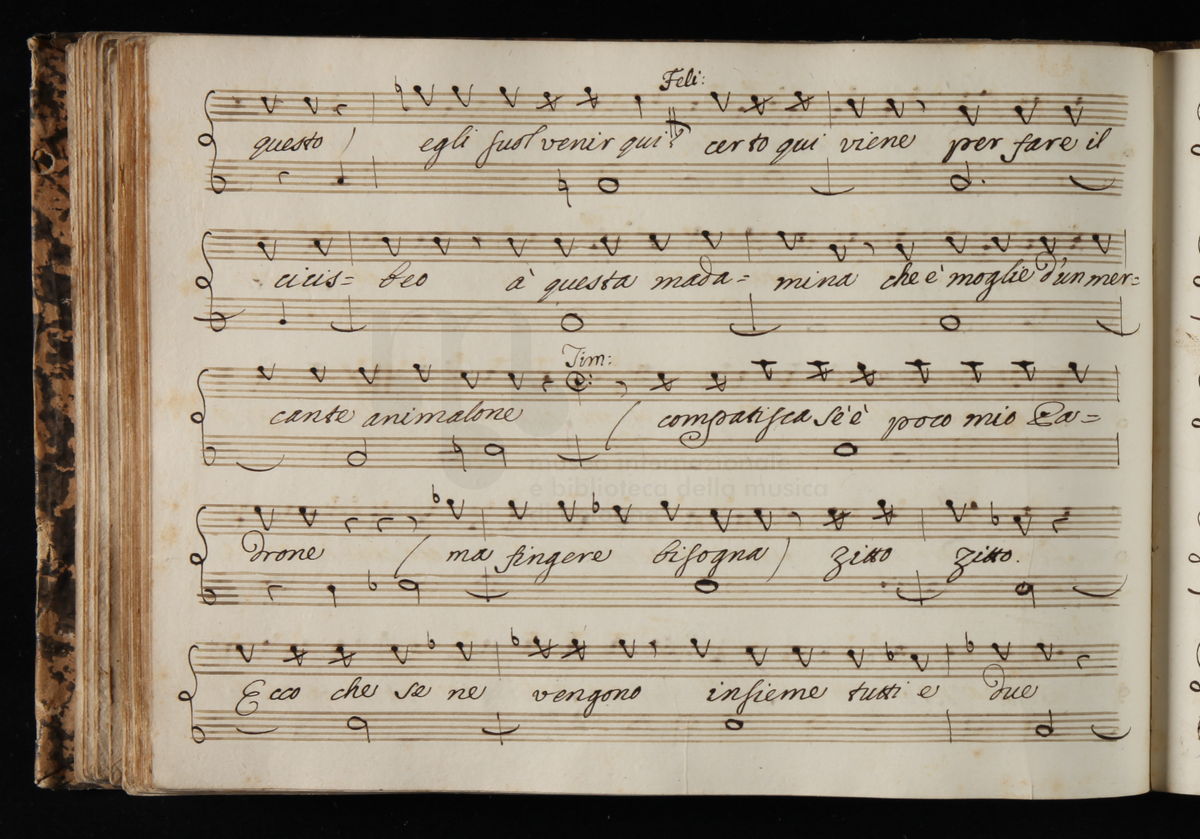 Feli:
questo) egli suol venir qui? certo qui viene per fare il
cicis= beo à questa mada= mina che è moglie d'un mer=
Tim:
cante animalone (compatisca se è poco mio Pa=
museo internazionale
e biblioteca della musica
drone (ma fingere bisogna) zitto zitto.
Ecco che se ne vengono insieme tutti e due